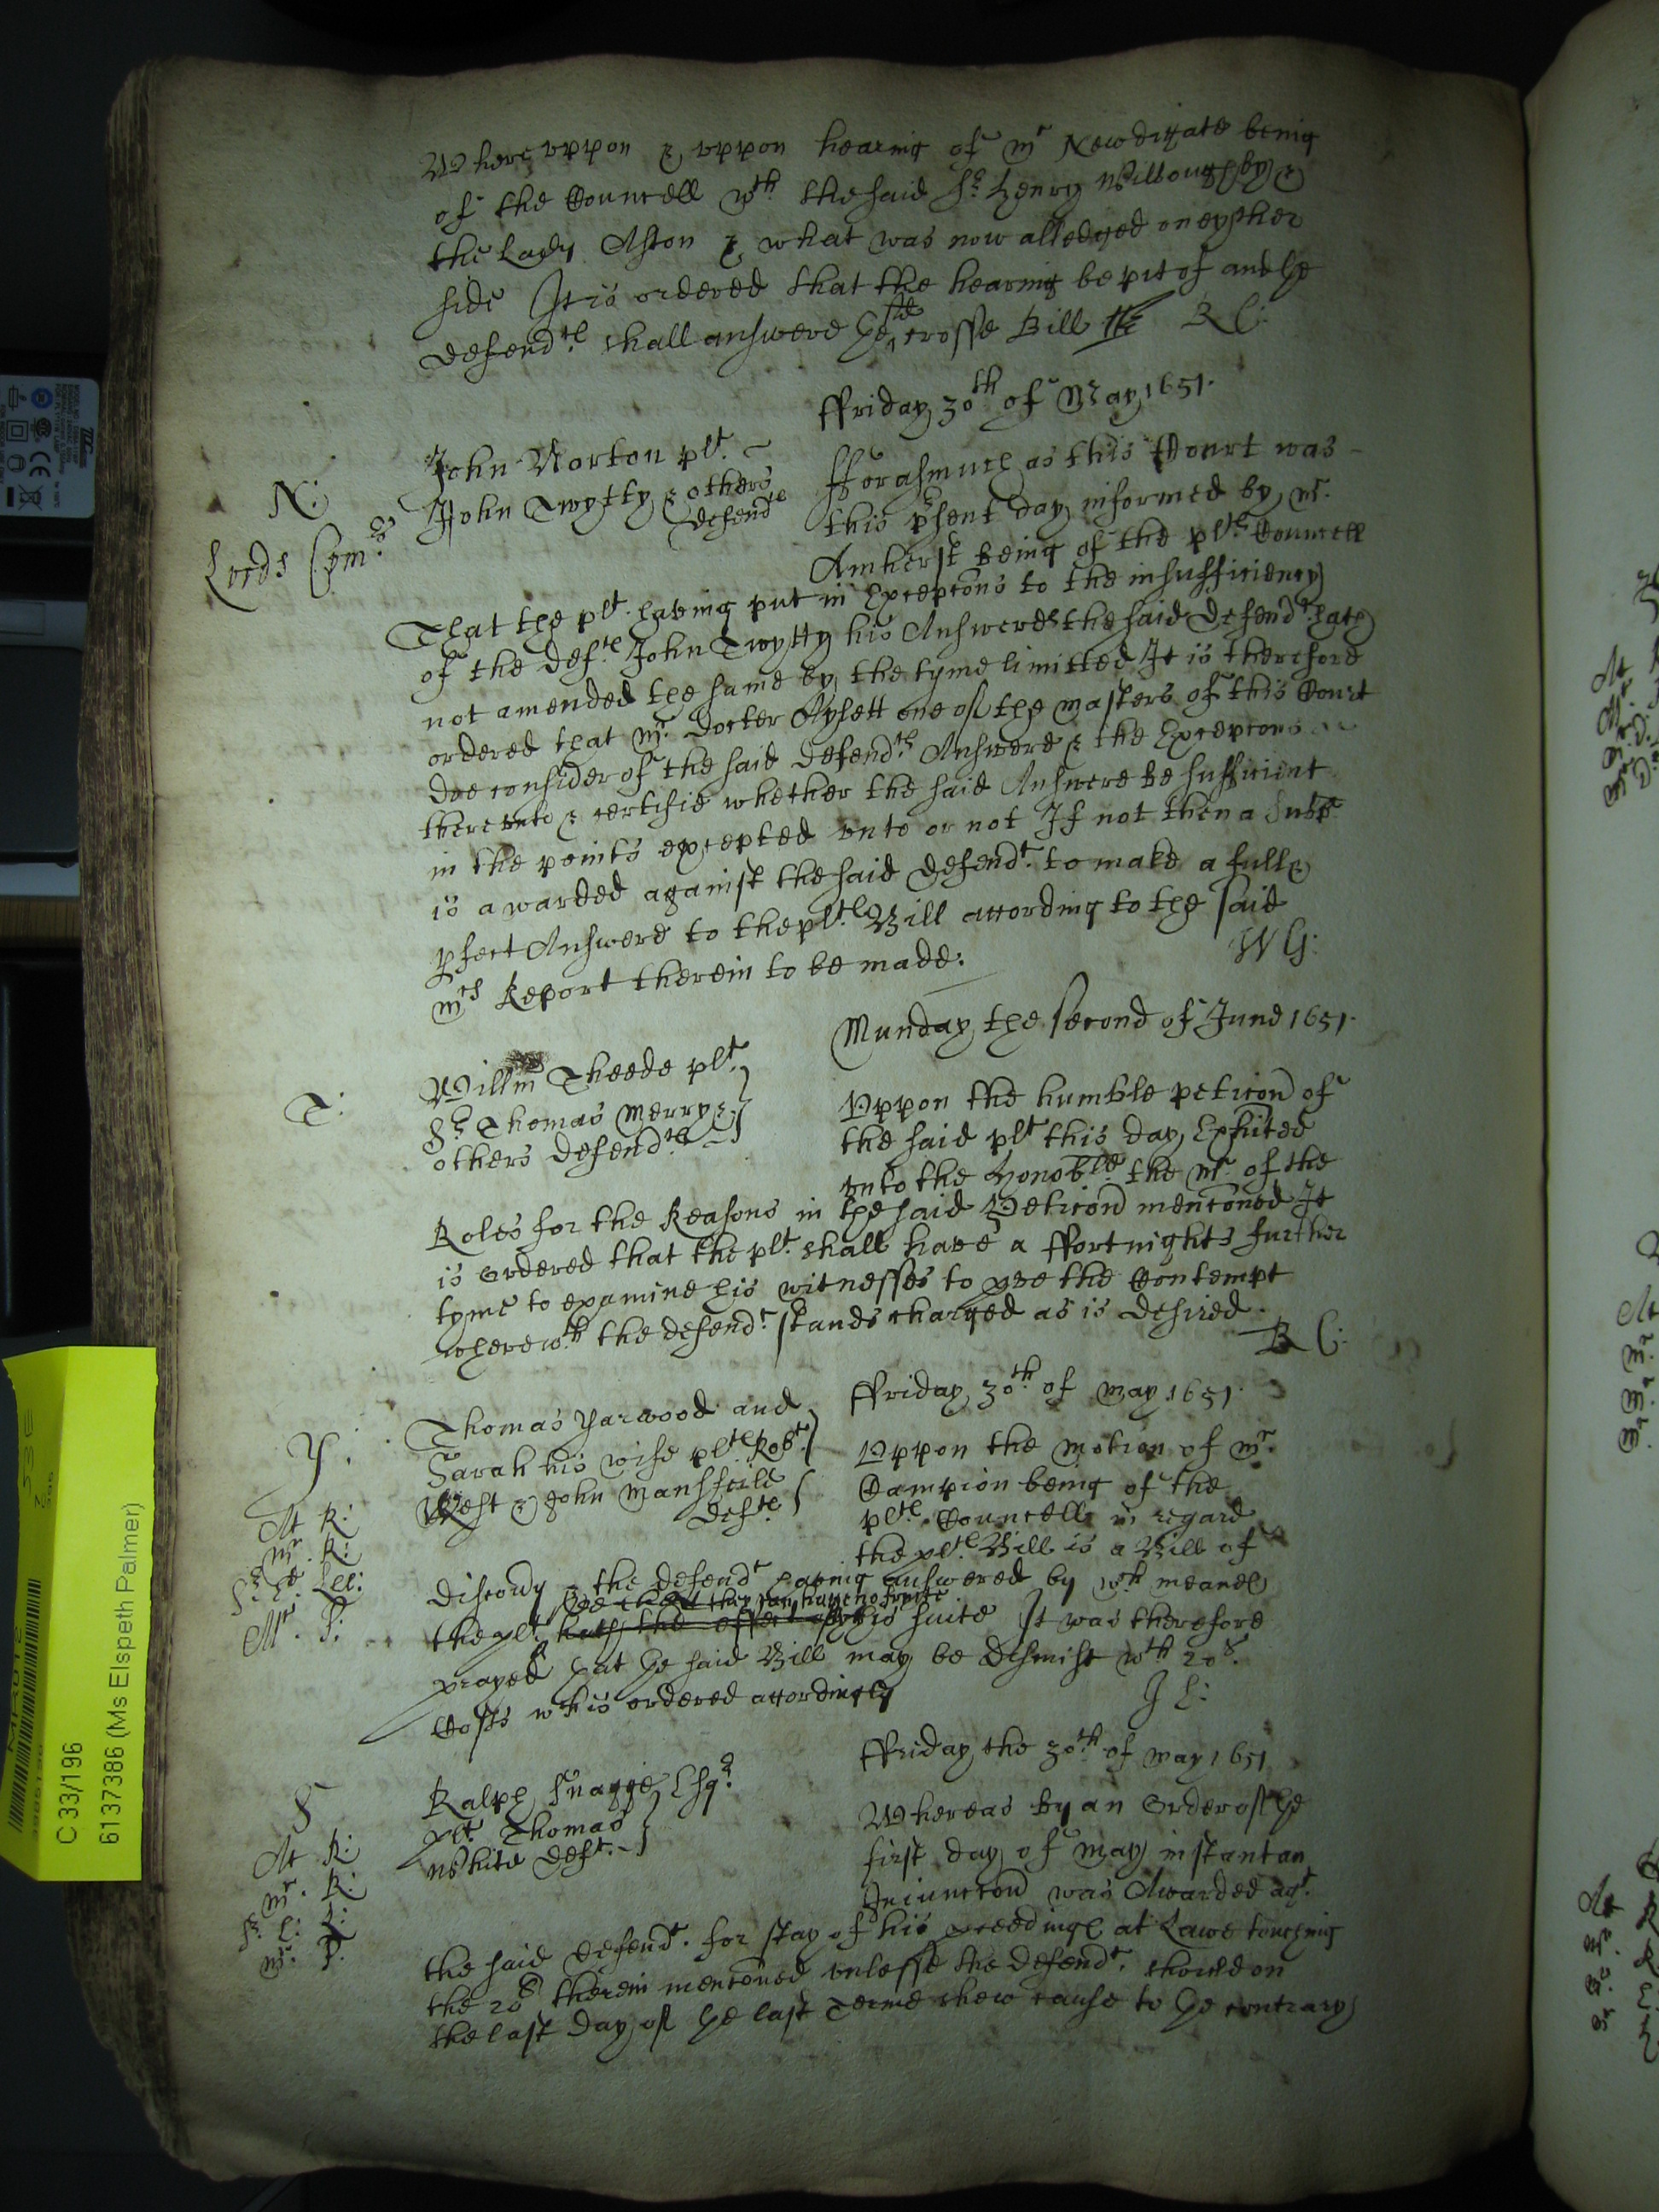 Whereuppon & uppon hearing of Mr Newdigate being
of the Councell wth the said Sr Henry Willoughby &
the Lady Aston & what was now alledged on eyther
side It is ordered that the hearing be put of and the
defendts shall answere the crosse Bill R C:
ffriday 30th of May 1651.
N:
Lords Comrs
John Norton plt.
John Twytty & others
defendts
fforasmuch as this Court was
this psent day informed by Mr.
Amherst being of the plts Councell
That the plt. having put in Excepcons to the insufficiency
of the defts John Twytty his Answeres the said Defendt. hath
not amended the same by the tyme limitted It is therefore
ordered that Mr. Docter Aylett one of the masters of this Court
doe consider of the said defendts Answere & the Excepcons
thereunto & certifie whether the said Answere be sufficient
in the points excepted unto or not If not then a Subp
is awarded against the said defendt. to make a full &
pfect Answere to the plts Bill according to the said
Mrs Report therein to be made.
W G:
Munday the second of June 1651.
T:
Willm Theede plt.
Sr Thomas Merry &
others defendts
Uppon the humble peticon of
the said plt this day Exhited
unto the Honoble the Mr. of the
Roles for the Reasons in the said Peticon menconed It
is Ordered that the plt. shall have a ffortnights further
tyme to examine his witnesses to pve the Contempt
wherewth the defendt stands charged as is desired.
R C:
ffriday 30th of May 1651.
Y:
At R:
Mr. R:
Mr. P:
Thomas Yarwood and
Sarah his wife plts Robt
West & John Mansfeild
defts
Uppon the Motion of Mr.
Campion being of the
plts Councell in regard
the plts Bill is a Bill of
discovy & the defendt having answered by wch meanes
the plt hath the effect of his suite It was therefore
they can have no fruite
prayed that the said Bill may be dismist wth 20s.
Costs wch is ordered accordingly
J L:
ffriday the 30th of May 1651
S
At R:
Mr. R:
Sr. L: L:
Mr. P.
Ralph Snagge Esqr
plt. Thomas
White deft.
Whereas by an Order of the
first day of May instant an
Iniunccon was Awarded agt.
the said defendt. for stay of his pceedings at Lawe touching
the 20l therein mencened unlesse the defendt. should on
the last day of the last Terme shew cause to the contrary
C 33/196
6137386 (Ms Elspeth Palmer)